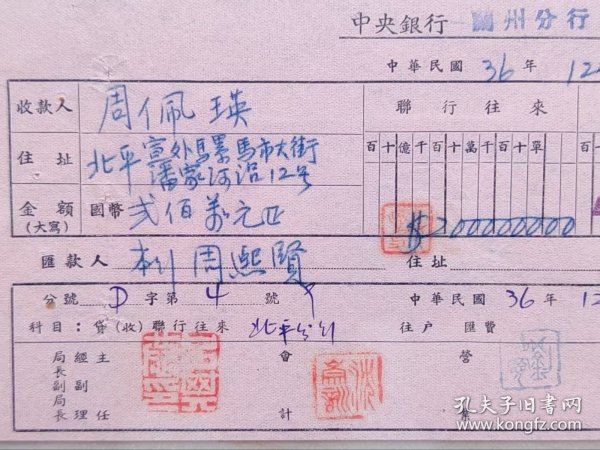 中央銀行 蘭州分行
中華民國 36年 12
收款人 周佩瑛
聯行往來
住址 北平宣外騾馬市大街
潘家河沿12号
百十億千百十萬千百十單
金額 國幣 貳佰萬元正
(大寫)
$200000000
匯款人 本行周熙賢 住址
分號 D 字第 4 號 中華民國 36年 12
科目：貸(收)聯行往來 北平分行 往戶 匯費
局長副局長
經副理
主任
會計
營業
孔夫子旧书网
www.kongfz.com